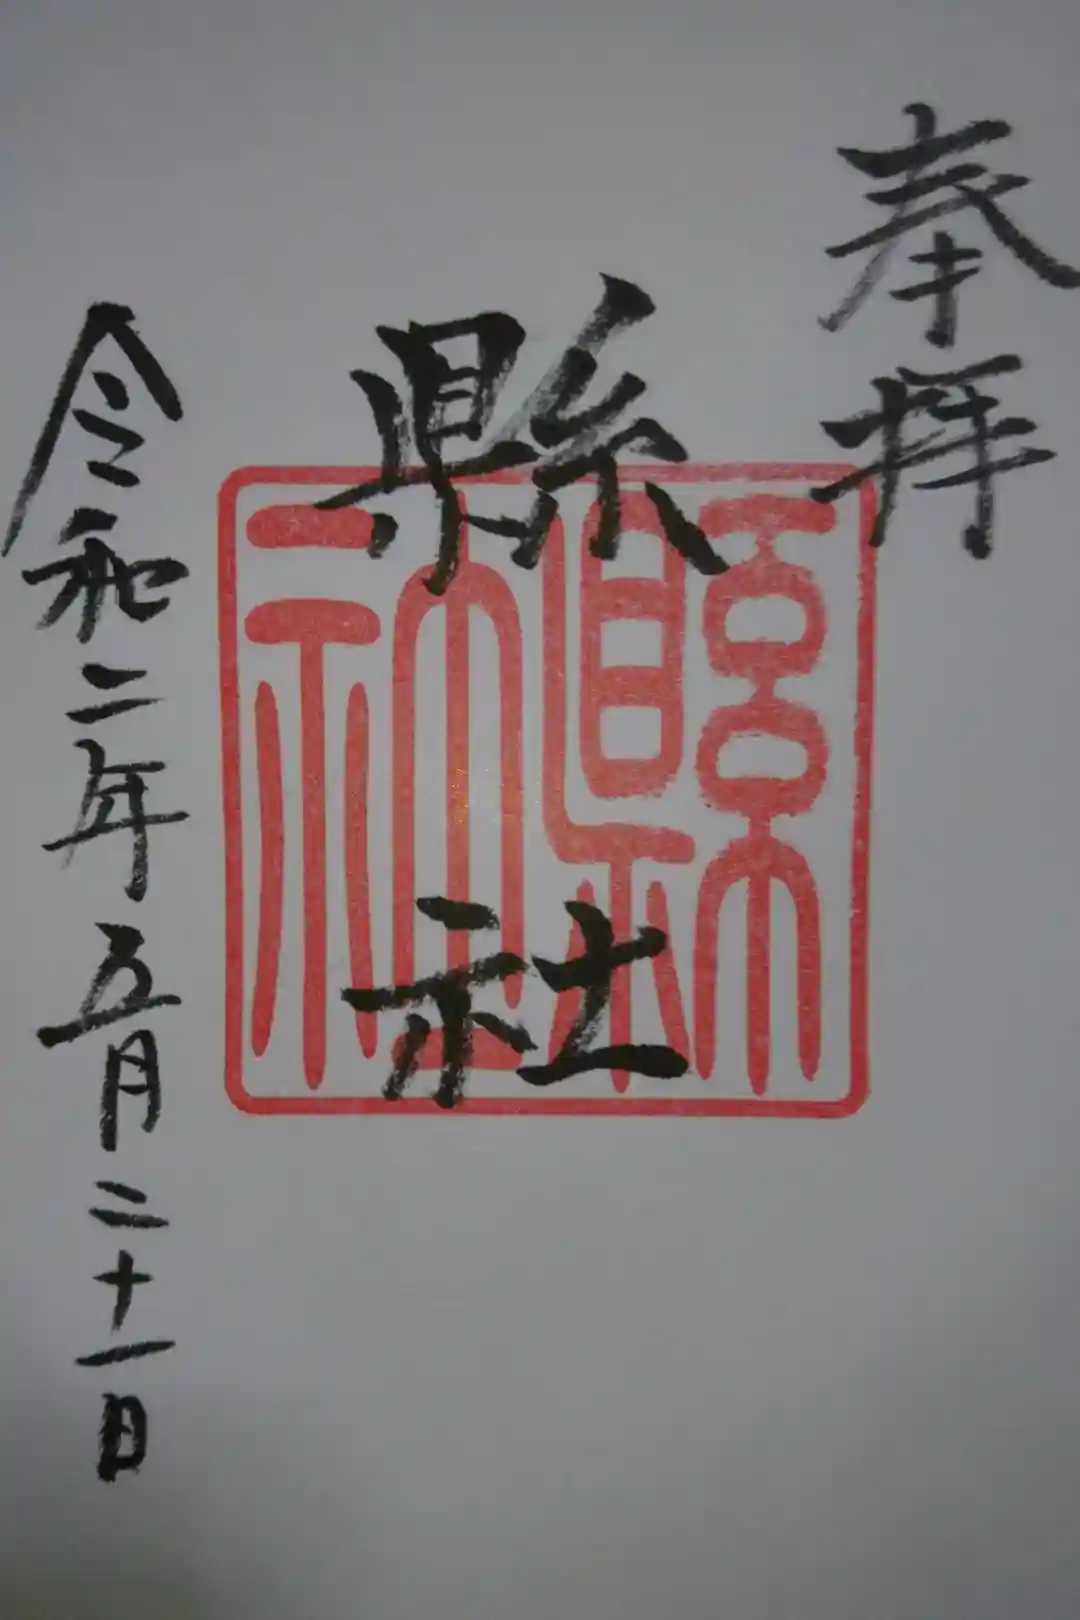 奉拝
縣社
縣社
令和二年五月二十一日